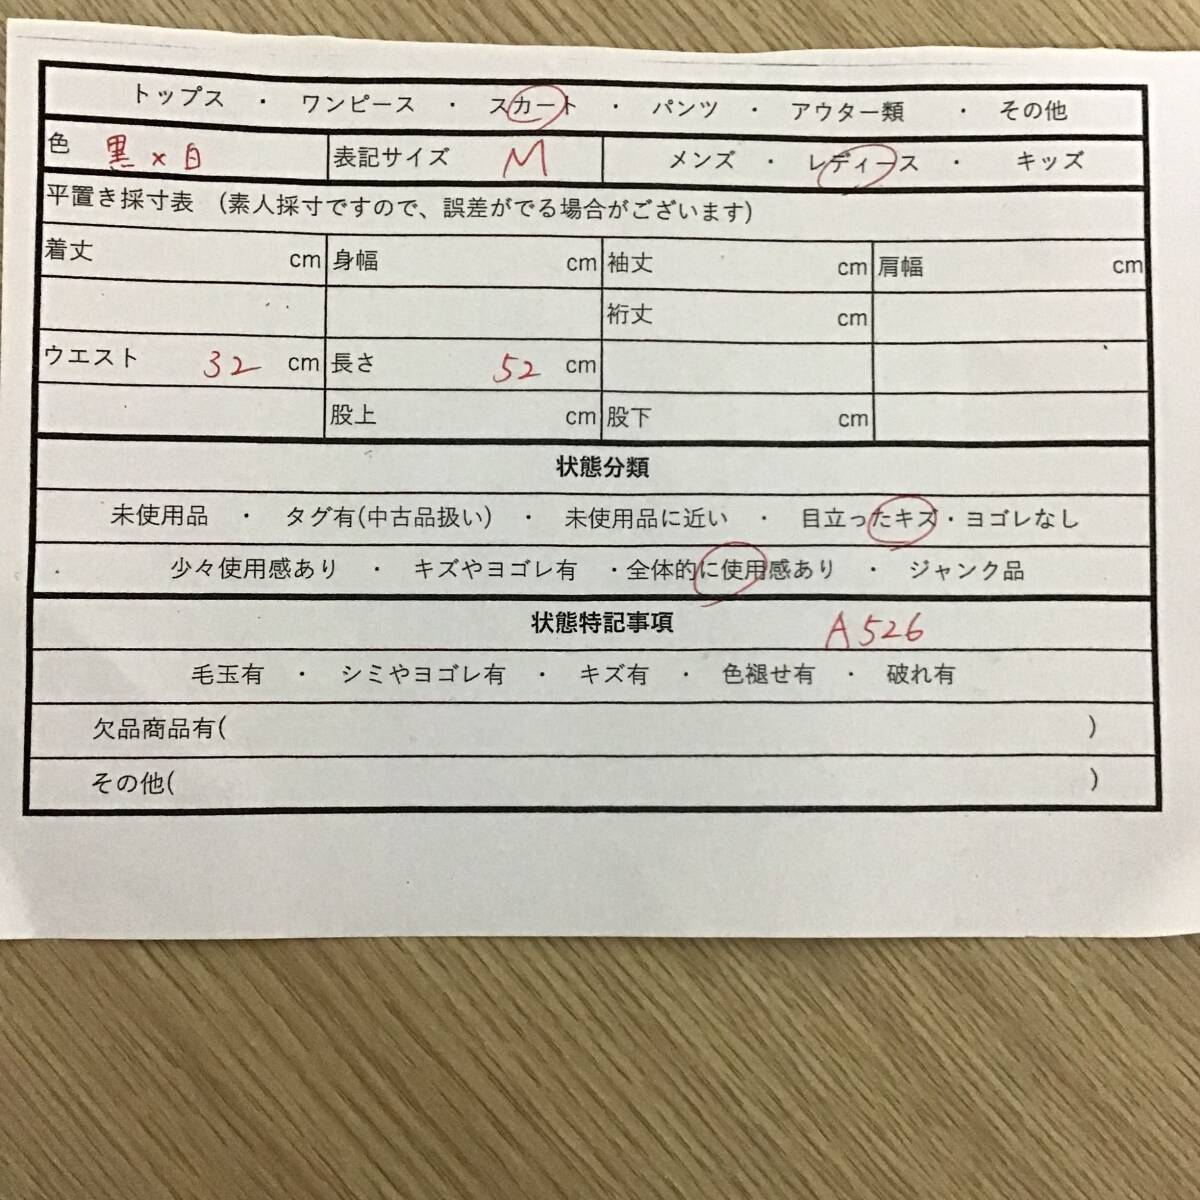 トップス ・ ワンピース ・ スカート ・ パンツ ・ アウター類 ・ その他
色 黒×白 表記サイズ M メンズ ・ レディース ・ キッズ
平置き採寸表 (素人採寸ですので、誤差がでる場合がございます)
着丈 cm 身幅 cm 袖丈 cm 肩幅 cm
裄丈 cm
ウエスト 32 cm 長さ 52 cm
股上 cm 股下 cm
状態分類
未使用品 ・ タグ有(中古品扱い) ・ 未使用品に近い ・ 目立ったキズ・ヨゴレなし
少々使用感あり ・ キズやヨゴレ有 ・全体的に使用感あり ・ ジャンク品
状態特記事項 A526
毛玉有 ・ シミやヨゴレ有 ・ キズ有 ・ 色褪せ有 ・ 破れ有
欠品商品有( )
その他( )